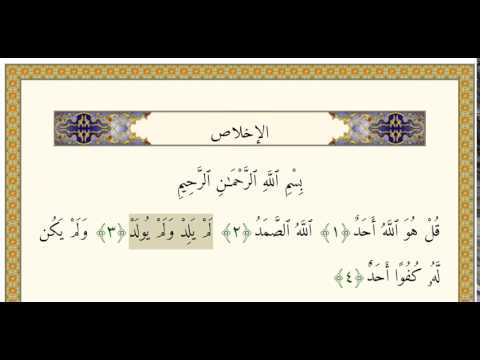 الإخلاص
بِسْمِ ٱللَّهِ ٱلرَّحْمَـٰنِ ٱلرَّحِيمِ
قُلْ هُوَ ٱللَّهُ أَحَدٌ ﴿١﴾ ٱللَّهُ ٱلصَّمَدُ ﴿٢﴾ لَمْ يَلِدْ وَلَمْ يُولَدْ ﴿٣﴾ وَلَمْ يَكُن
لَّهُۥ كُفُوًا أَحَدٌۢ ﴿٤﴾